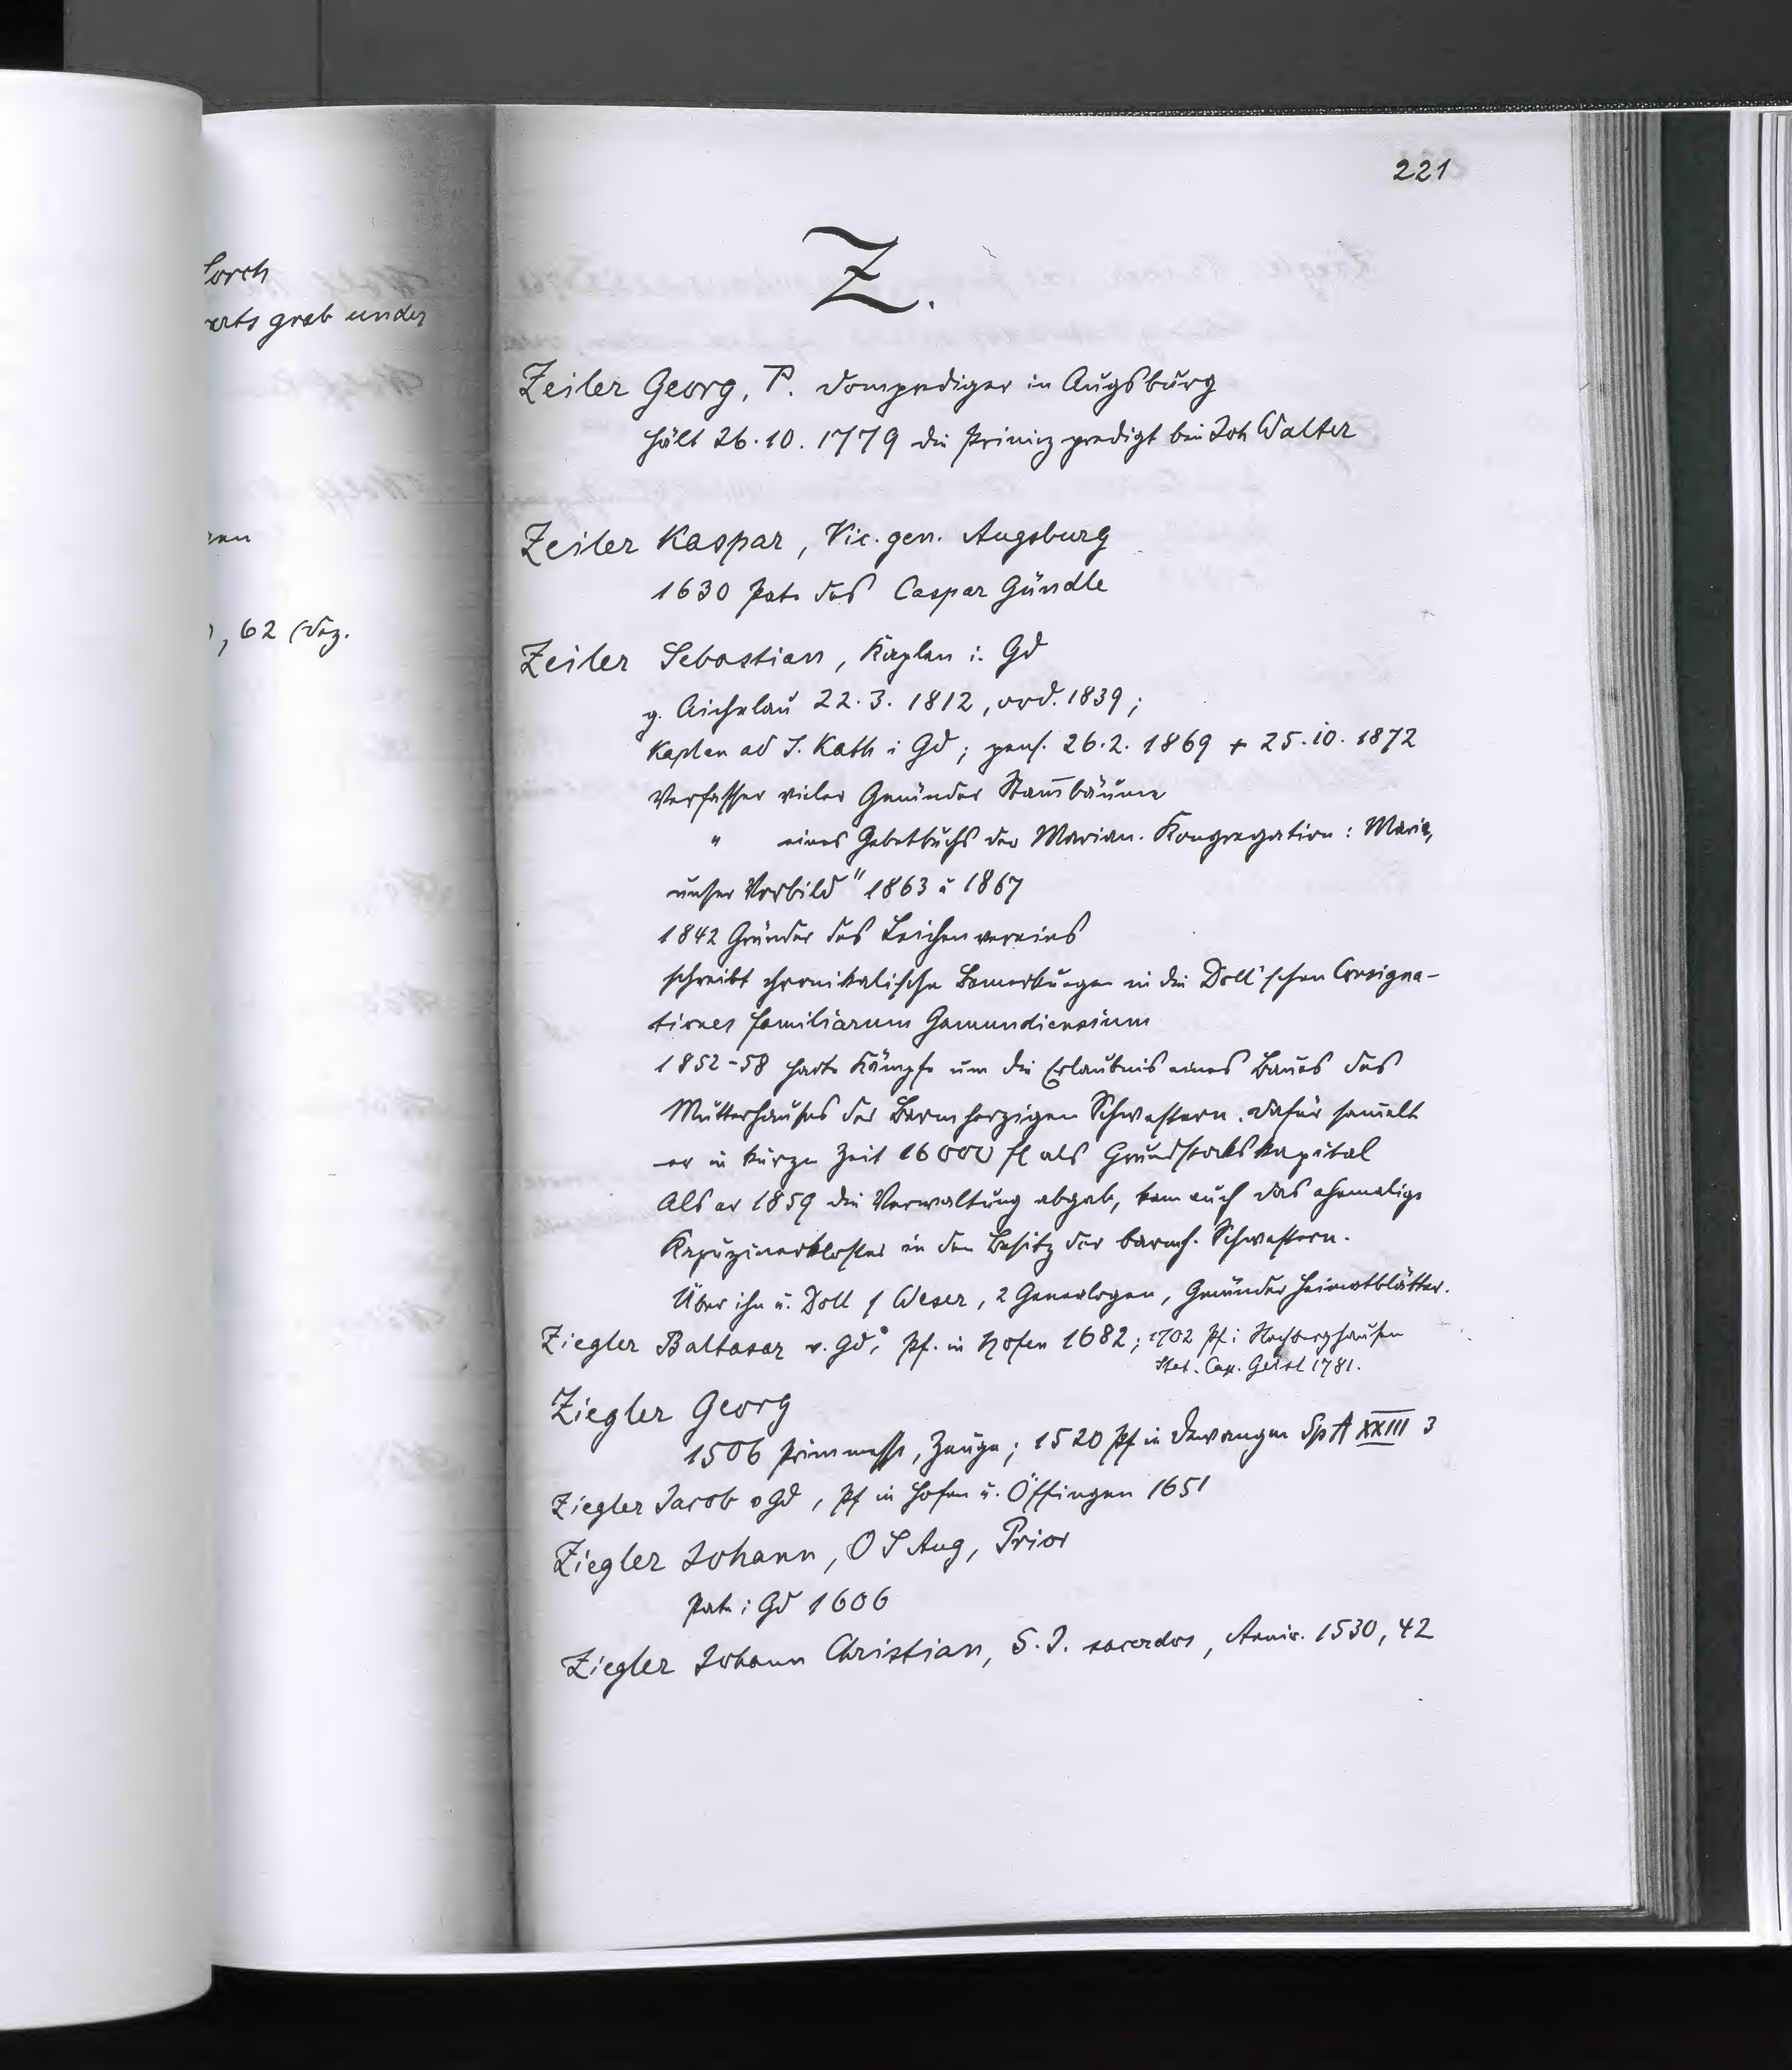 221
Lorch
arts grab under
, 62 (Dez.
Z.
Zeiler Georg, P. Domprediger in Augsburg
hält 26.10.1779 die Primizpredigt bei Joh Walter
Zeiler Kaspar, Vic. gen. Augsburg
1630 Pate des Caspar Gündle
Zeiler Sebastian, Kaplan i. Gd
g. Aichelau 22.3.1812, ord. 1839;
Kaplan ad S. Kath i Gd; pens. 26.2.1869 + 25.10.1872
Verfasser vieler Gmünder Stam̄bäume
" eines Gebetbuchs der Marian. Kongregation: Maria,
unser Vorbild" 1863 u 1867
1842 Gründer des Leichenvereins
schreibt chronikalische Bemerkungen in die Doll'schen Consigna-
tiones familiarum Gamundiensium
1852-58 harte Kämpfe um die Erlaubnis eines Baues des
Mutterhauses der Barmherzigen Schwestern. Dafür sam̄elt
er in kurzer Zeit 16000 fl als Grundstockskapital
Als er 1859 die Verwaltung abgab, kam auch das ehemalige
Kapuzinerkloster in den Besitz der barmh. Schwestern.
Über ihn u. Doll f Weser, 2 Genealogen, Gmünder Heimatblätter.
Ziegler Baltasar v. Gd, Pf. in Hofen 1682; 1702 Pf i Hochberghausen
Cap. 1781.
Ziegler Georg
1506 Primmesse, Zeuge; 1520 Pf in Dewangen SpA XXIII 3
Ziegler Jacob v Gd, Pf in Hofen u. Öffingen 1651
Ziegler Johann, O S Aug, Prior
Pate i Gd 1606
Ziegler Johann Christian, S. J. sacerdos, Anniv. 1530, 42